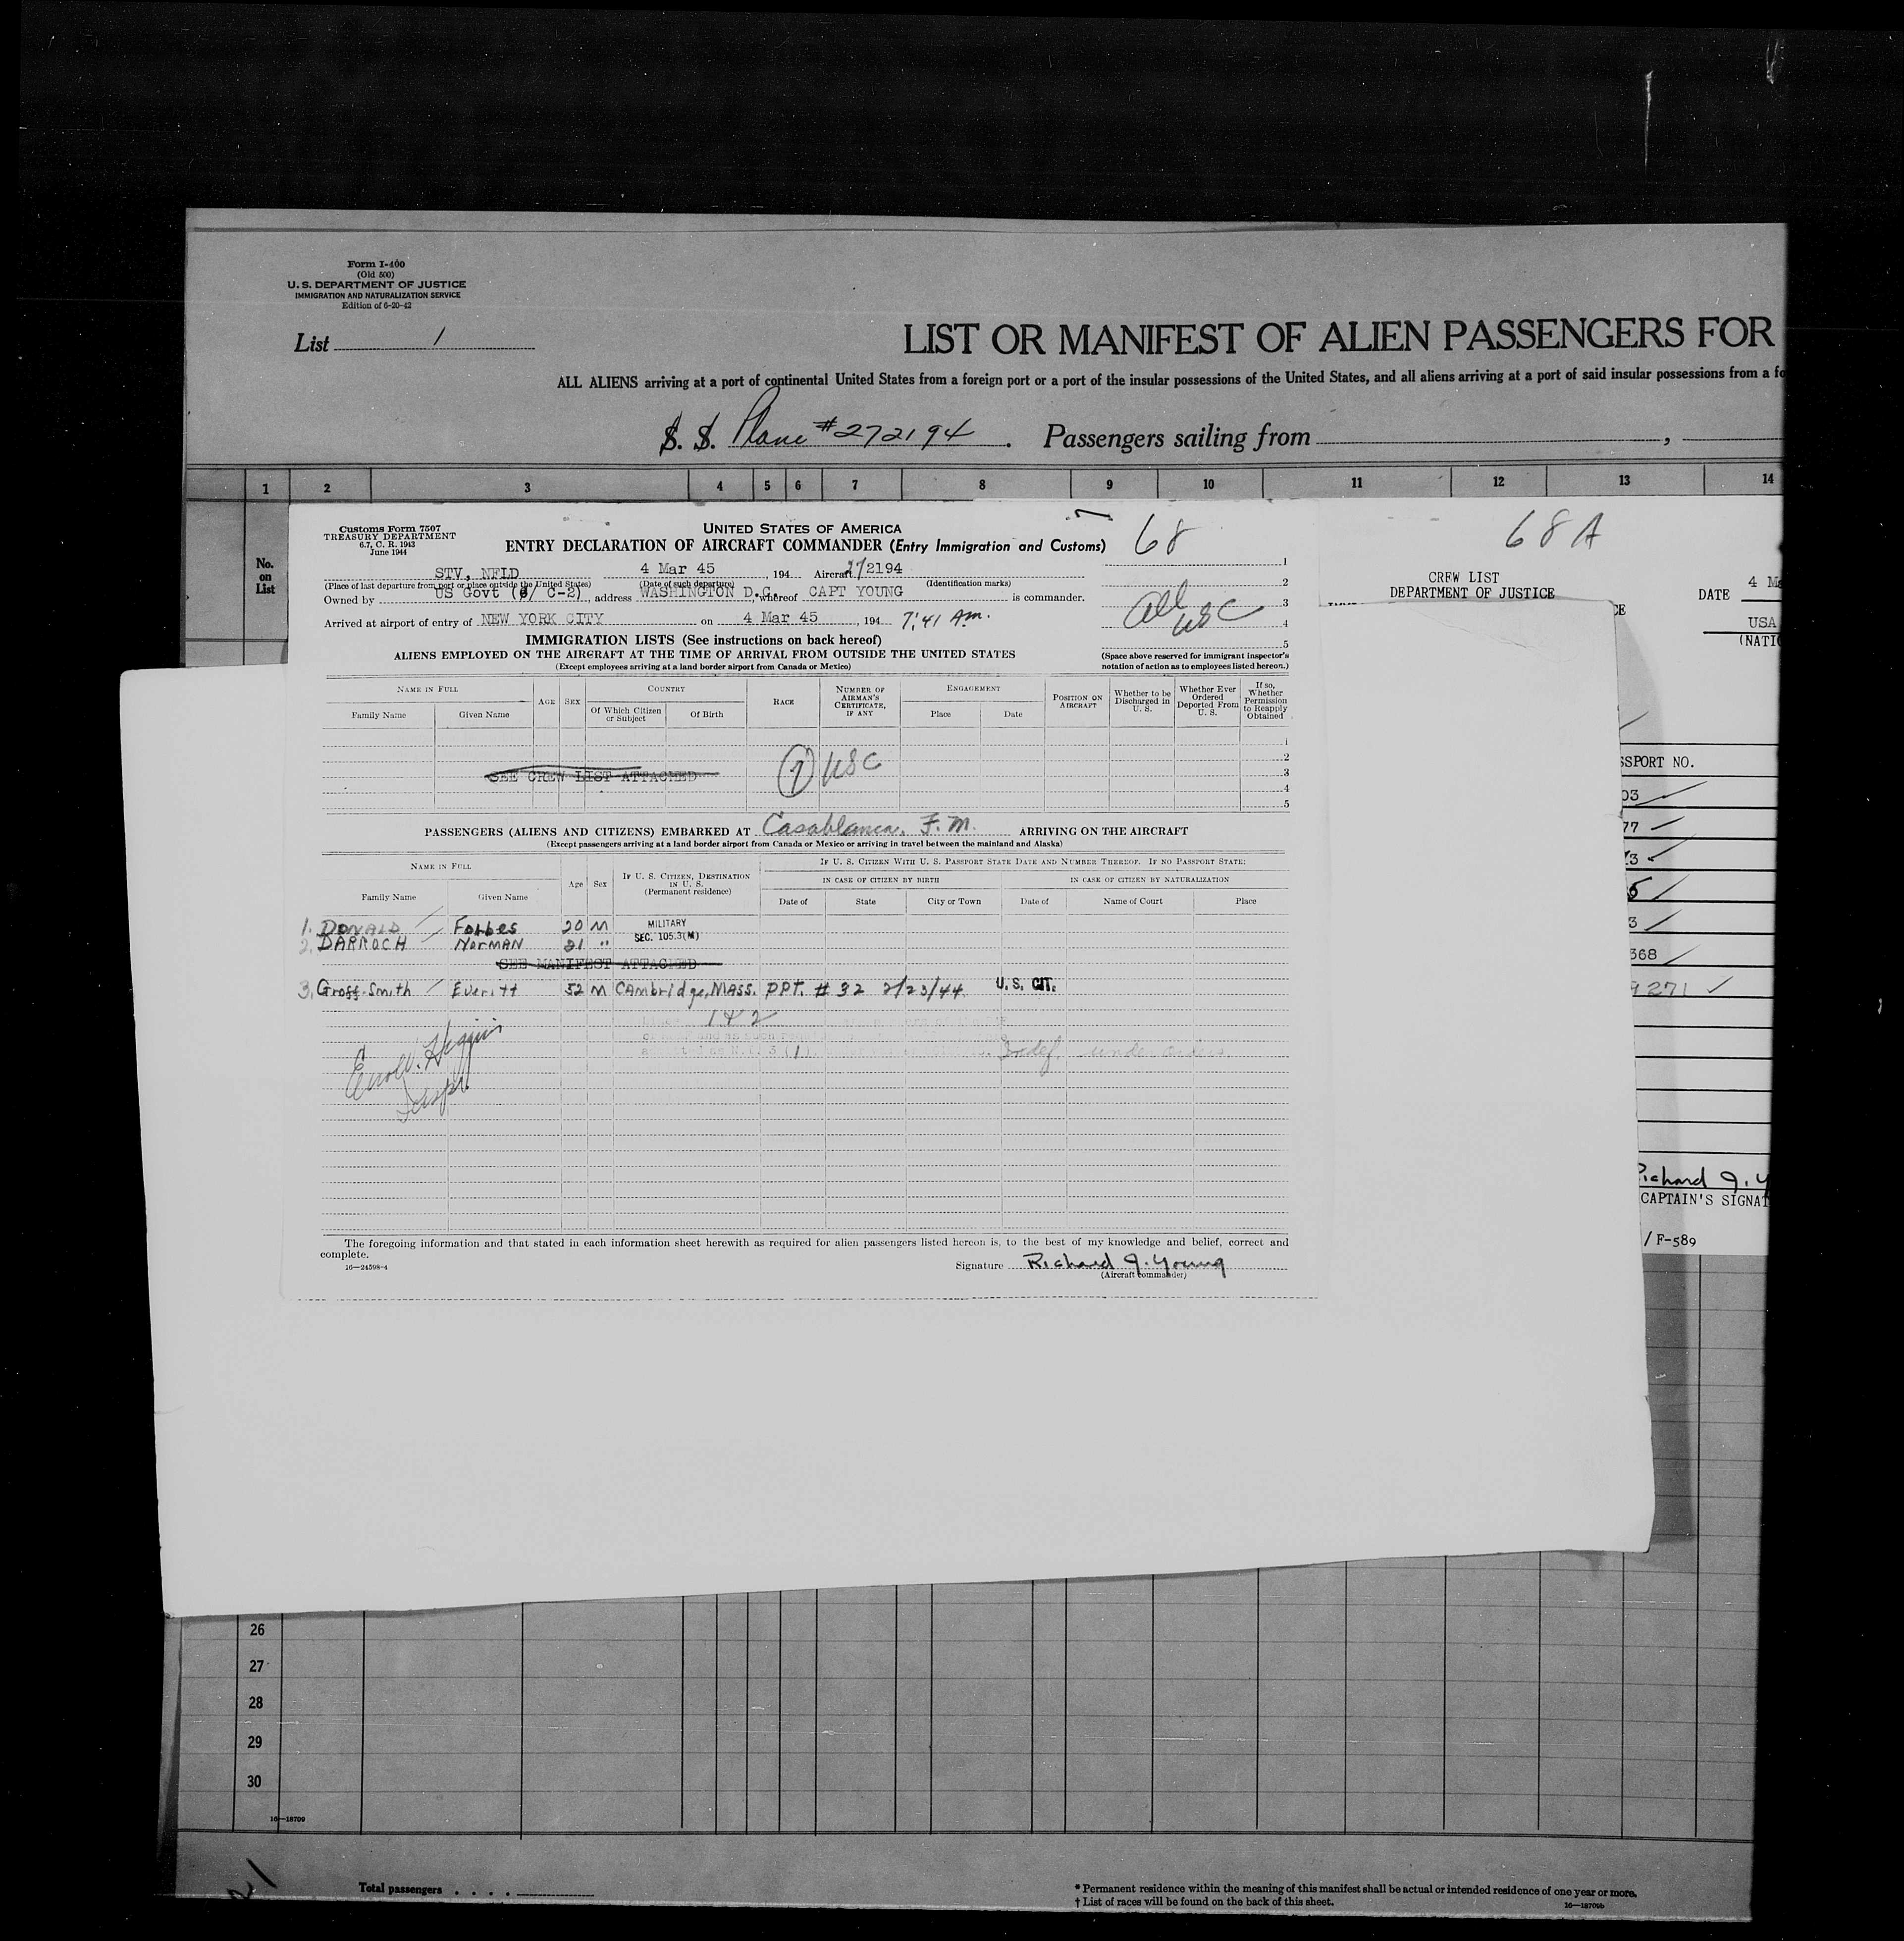 Form I-400
(Old 500)
U. S. DEPARTMENT OF JUSTICE
IMMIGRATION AND NATURALIZATION SERVICE
Edition of 6-20-42
List 1
LIST OR MANIFEST OF ALIEN PASSENGERS FOR
ALL ALIENS arriving at a port of continental United States from a foreign port or a port of the insular possessions of the United States, and all aliens arriving at a port of said insular possessions from a fo
S. S. Plane #272194. Passengers sailing from ,
1 2 3 4 5 6 7 8 9 10 11 12 13 14
No. on List
Customs Form 7507
TREASURY DEPARTMENT
6.7, C. R. 1943
June 1944
UNITED STATES OF AMERICA
ENTRY DECLARATION OF AIRCRAFT COMMANDER (Entry Immigration and Customs)
68
STV, NFLD 4 Mar 45, 194 Aircraft 272194
(Place of last departure from port or place outside the United States) (Date of such departure) (Identification marks)
Owned by US Govt ( / C-2), address WASHINGTON D.C., whereof CAPT YOUNG is commander.
Arrived at airport of entry of NEW YORK CITY on 4 Mar 45, 194 7:41 Am.
1
2
3
4
5
All USC
(Space above reserved for immigrant inspector's notation of action as to employees listed hereon.)
IMMIGRATION LISTS (See instructions on back hereof)
ALIENS EMPLOYED ON THE AIRCRAFT AT THE TIME OF ARRIVAL FROM OUTSIDE THE UNITED STATES
(Except employees arriving at a land border airport from Canada or Mexico)
NAME IN FULL
Family Name Given Name
AGE SEX
COUNTRY
Of Which Citizen or Subject Of Birth
RACE
NUMBER OF AIRMAN'S CERTIFICATE, IF ANY
ENGAGEMENT
Place Date
POSITION ON AIRCRAFT
Whether to be Discharged in U. S.
Whether Ever Ordered Deported From U. S.
If so, Whether Permission to Reapply Obtained
1
2
3
4
5
SEE CREW LIST ATTACHED
(7) USC
PASSENGERS (ALIENS AND CITIZENS) EMBARKED AT Casablanca, F.M. ARRIVING ON THE AIRCRAFT
(Except passengers arriving at a land border airport from Canada or Mexico or arriving in travel between the mainland and Alaska)
NAME IN FULL
Family Name Given Name
Age Sex
IF U. S. CITIZEN, DESTINATION IN U. S.
(Permanent residence)
IF U. S. CITIZEN WITH U. S. PASSPORT STATE DATE AND NUMBER THEREOF. IF NO PASSPORT STATE:
IN CASE OF CITIZEN BY BIRTH IN CASE OF CITIZEN BY NATURALIZATION
Date of State City or Town Date of Name of Court Place
1. DONALD Forbes 20 M MILITARY
2. DARROCH NORMAN 21 " SEC. 105.3(M)
SEE MANIFEST ATTACHED
3. Groff-Smith Everitt 52 M Cambridge, Mass. PPT. # 32 2/23/44 U. S. CIT.
1 & 2
under orders
Higgins
Insp.
The foregoing information and that stated in each information sheet herewith as required for alien passengers listed hereon is, to the best of my knowledge and belief, correct and
complete.
16—24598-4
Signature Richard J. Young
(Aircraft commander)
68 A
CREW LIST
DEPARTMENT OF JUSTICE
CE
DATE 4 Ma
USA
(NATIO
SSPORT NO.
03
77
3
5
3
368
9271
Richard J. Y
CAPTAIN'S SIGNAT
/ F-589
26
27
28
29
30
16—18709
Total passengers . . . .
* Permanent residence within the meaning of this manifest shall be actual or intended residence of one year or more.
† List of races will be found on the back of this sheet.
16—18709b